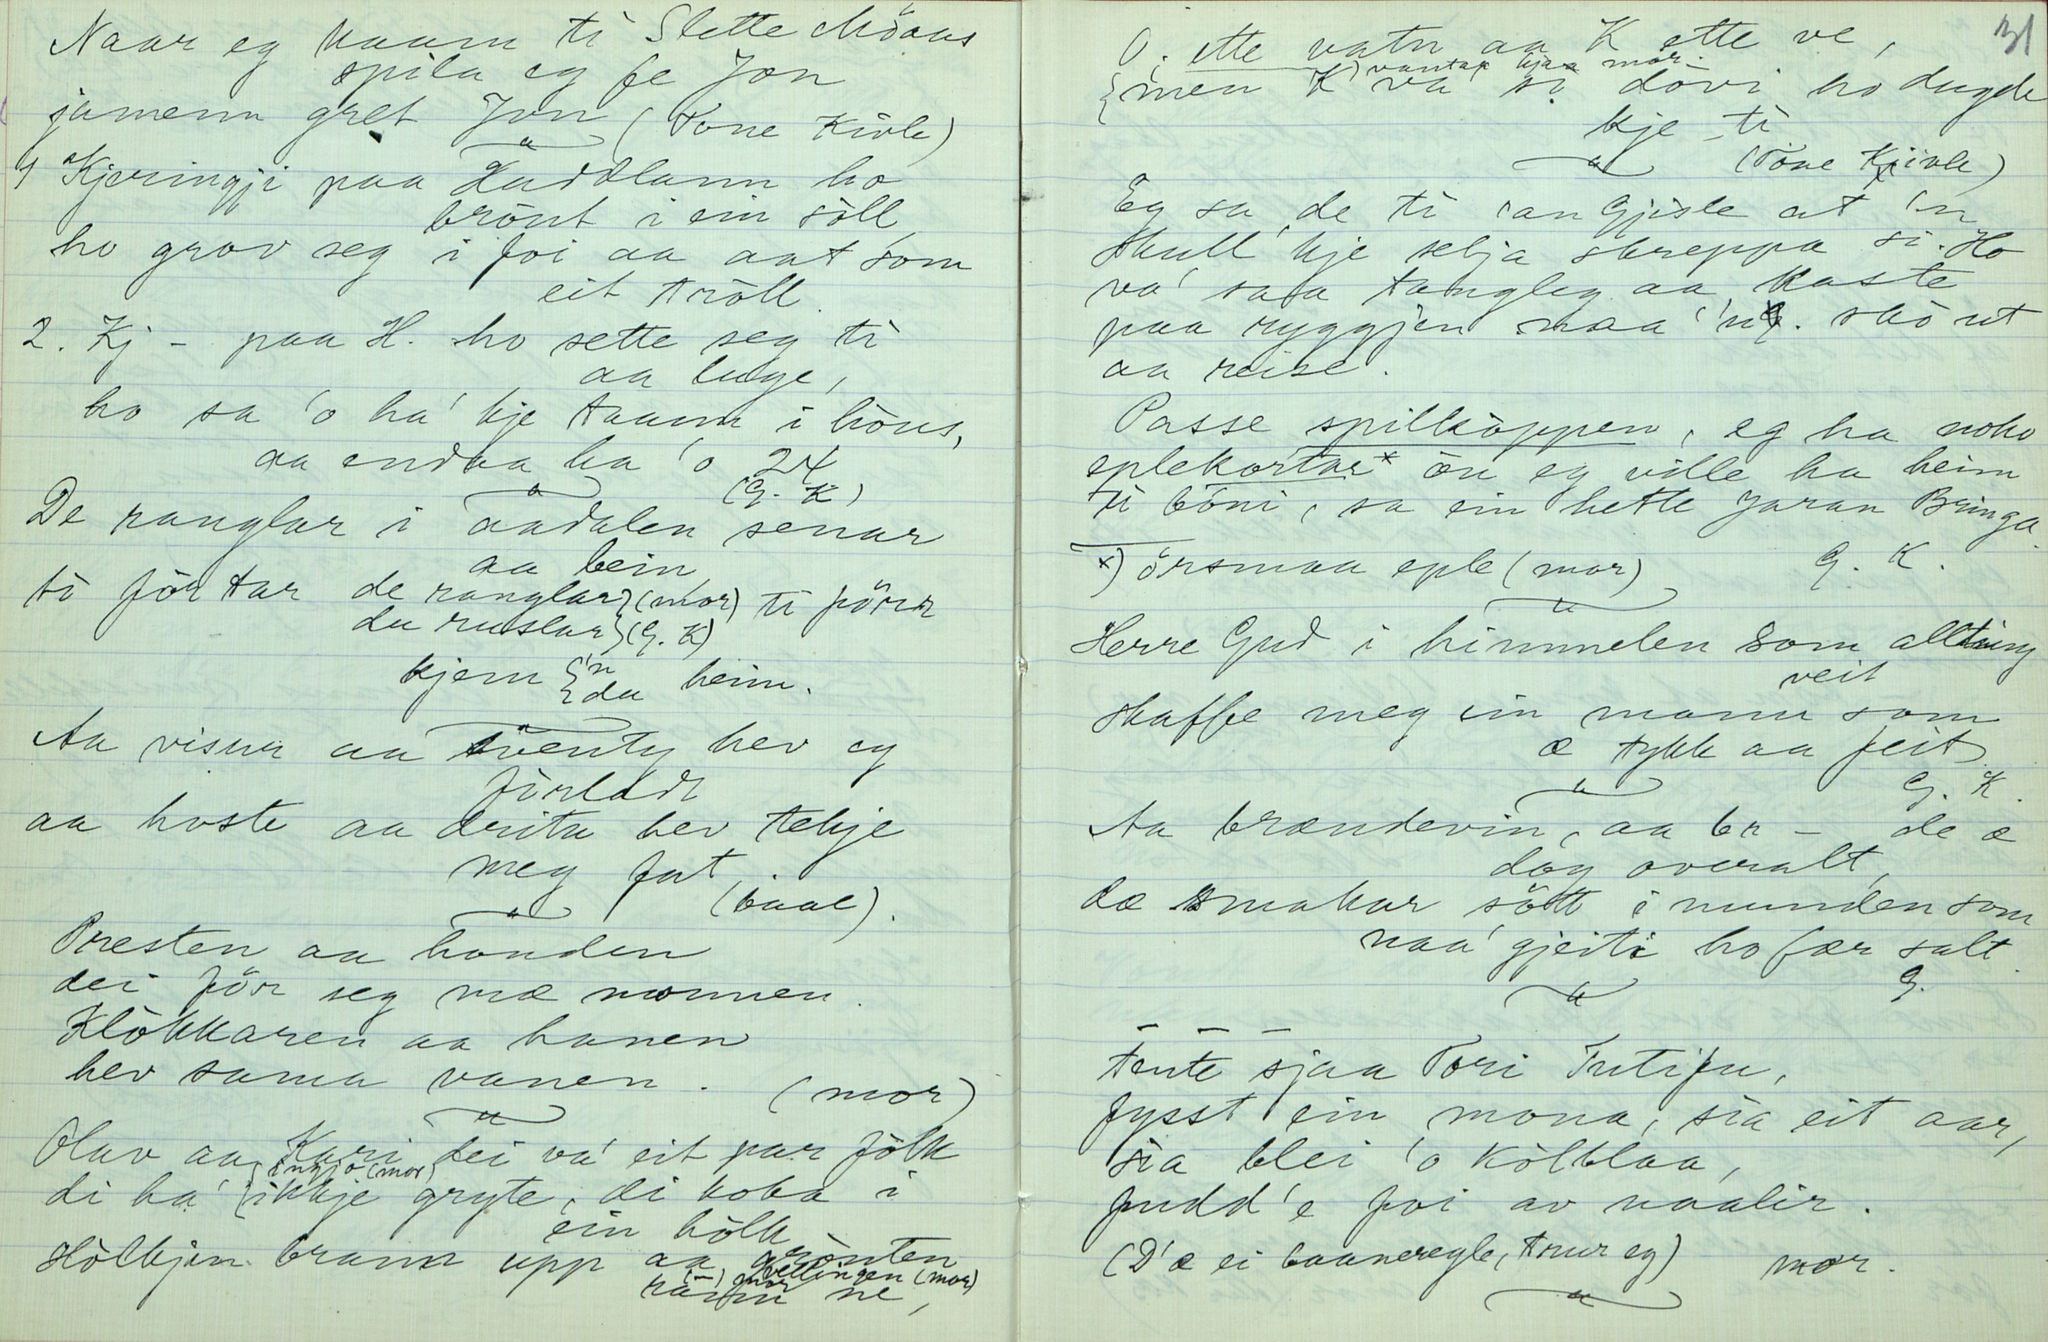 Naar eg kaam ti Slette Möans
spila eg fe Jon
jamenn gret Jon (Tone Kivle)
1 Kjeringji paa Haddlann ho
brönt i ein söll
ho grov seg i foi aa aat som
eit tröll.
2. Kj - paa H. ho sette seg ti
aa luge,
ho sa 'o ha' kje taann i höns,
aa endaa ha 'o 24
(G. K)
De ranglar i aadalen senar
aa bein
ti för tar de ranglar (mor) ti förr
du ruslar (G. K)
kjem 'n
du heim.
Aa visur aa eventy hev eg
förladt
aa hoste aa drita hev tekje
meg fat
(baal).
Presten aa honden
dei för seg mæ monnen.
Klökkaren aa hanen
hev sama vanen. (mor)
Olav aa Kari dei va' eit par fölk
ingjo (mor)
di ha' ikkje gryte, di koka i
ein hölk
Hölkjen brann upp aa grönten
vellingen (mor)
rann ne,
31
O. ette vatn aa K ette ve,
K) vantar hjaa mor
men K va' si dovi ho dugde
kje ti
(Tone Kivle)
Eg sa de ti 'an Gjisle at 'n
skull' kje selja skreppa si. Ho
va' saa tangleg aa kaste
paa ryggjen naa 'n sko ut
aa reise.
Passe spilköppen, eg ha noko
eplekortar* ön eg ville ha heim
ti böni, sa ein hette Jaran Bringa.
*) örsmaa eple (mor) G. K.
Herre Gud i himmelen som allting
veit
skaffe meg ein mann som
æ tykk aa feit
G. K.
Aa brændevin, aa br - de æ
dög overalt,
dæ smakar sött i munden som
naa' gjeiti ho fær salt.
G.
Tente sjaa Tori Tutifu,
fysst ein mona, sia eit aar,
sia blei 'o kölblaa,
fudd'e foi av naalir.
(D'æ ei baaneregle, trur eg) mor.